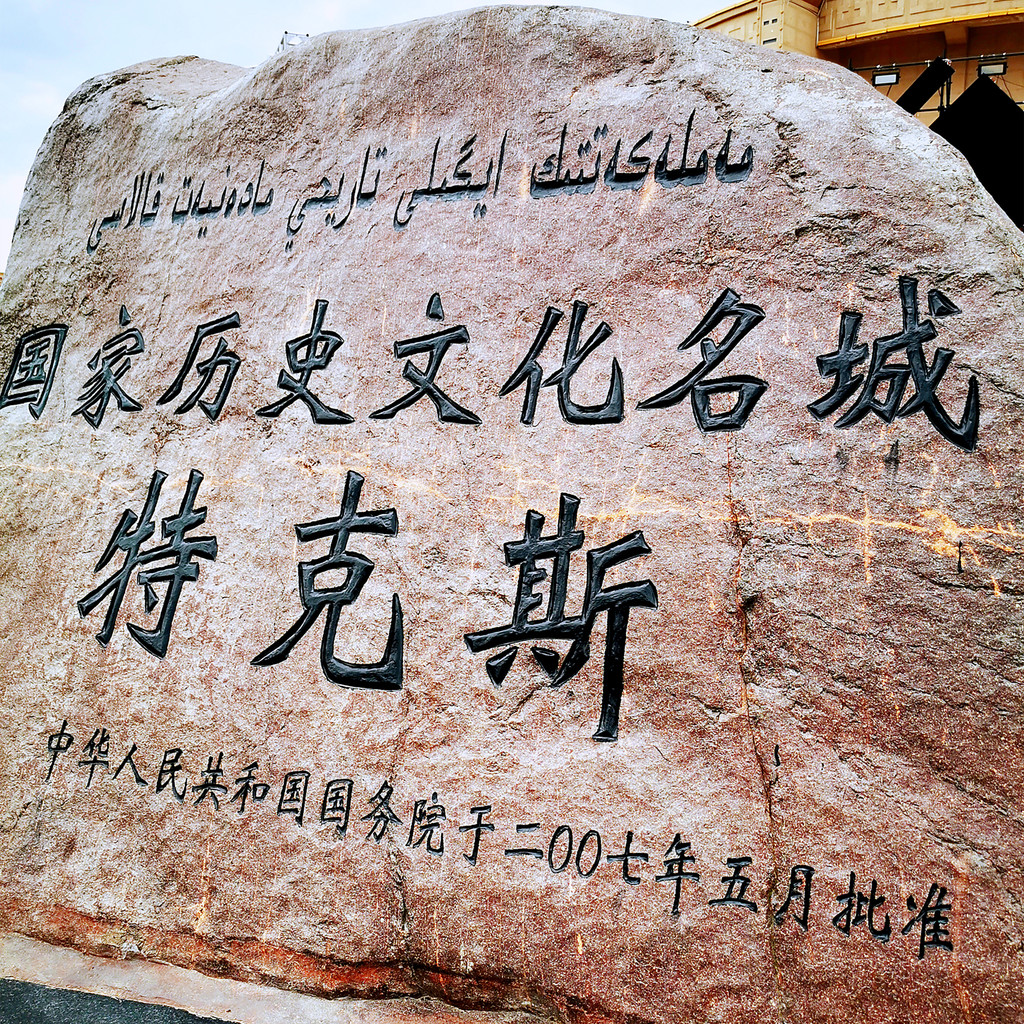 مەملەكەتتىك ايگىلى تاريحي مادەنيەت قالاسى
国家历史文化名城
特克斯
中华人民共和国国务院于二〇〇七年五月批准